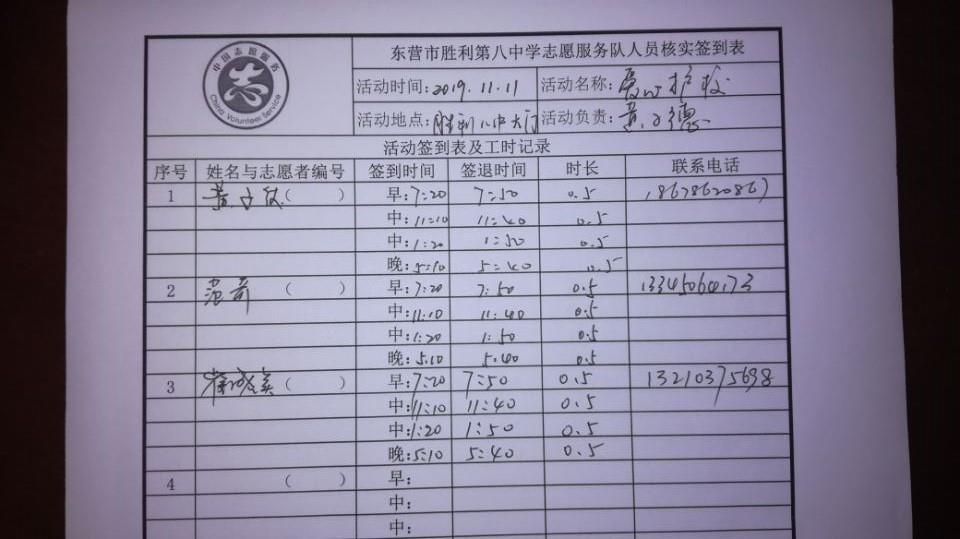 中国志愿服务
China Volunteer Service
东营市胜利第八中学志愿服务队人员核实签到表
活动时间:2019.11.11 活动名称:爱心护校
活动地点:胜利八中大门 活动负责:黄
活动签到表及工时记录
序号 姓名与志愿者编号 签到时间 签退时间 时长 联系电话
1 黄 ( ) 早:7:20 7:50 0.5
中:11:10 11:40 0.5
中:1:20 1:50 0.5
晚:5:10 5:40 0.5
2 ( ) 早:7:20 7:50 0.5
中:11:10 11:40 0.5
中:1:20 1:50 0.5
晚:5:10 5:40 0.5
3 ( ) 早:7:20 7:50 0.5 13210375698
中:11:10 11:40 0.5
中:1:20 1:50 0.5
晚:5:10 5:40 0.5
4 ( ) 早:
中:
中: